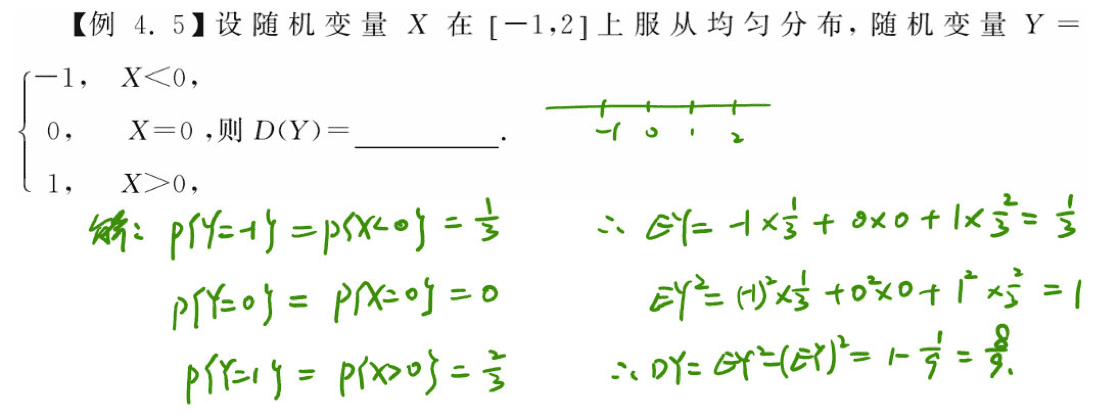 【例 4. 5】设随机变量 X 在[-1,2]上服从均匀分布,随机变量 Y =
{ -1, X<0,
0, X=0 ,则 D(Y)=________.
1, X>0,
-1 0 1 2
解: P{Y=-1} = P{X<0} = 1/3
P{Y=0} = P{X=0} = 0
P{Y=1} = P{X>0} = 2/3
∴ EY= -1×1/3 + 0×0 + 1×2/3 = 1/3
EY²= (-1)²×1/3 + 0²×0 + 1²×2/3 = 1
∴ DY= EY²-(EY)²= 1- 1/9 = 8/9.